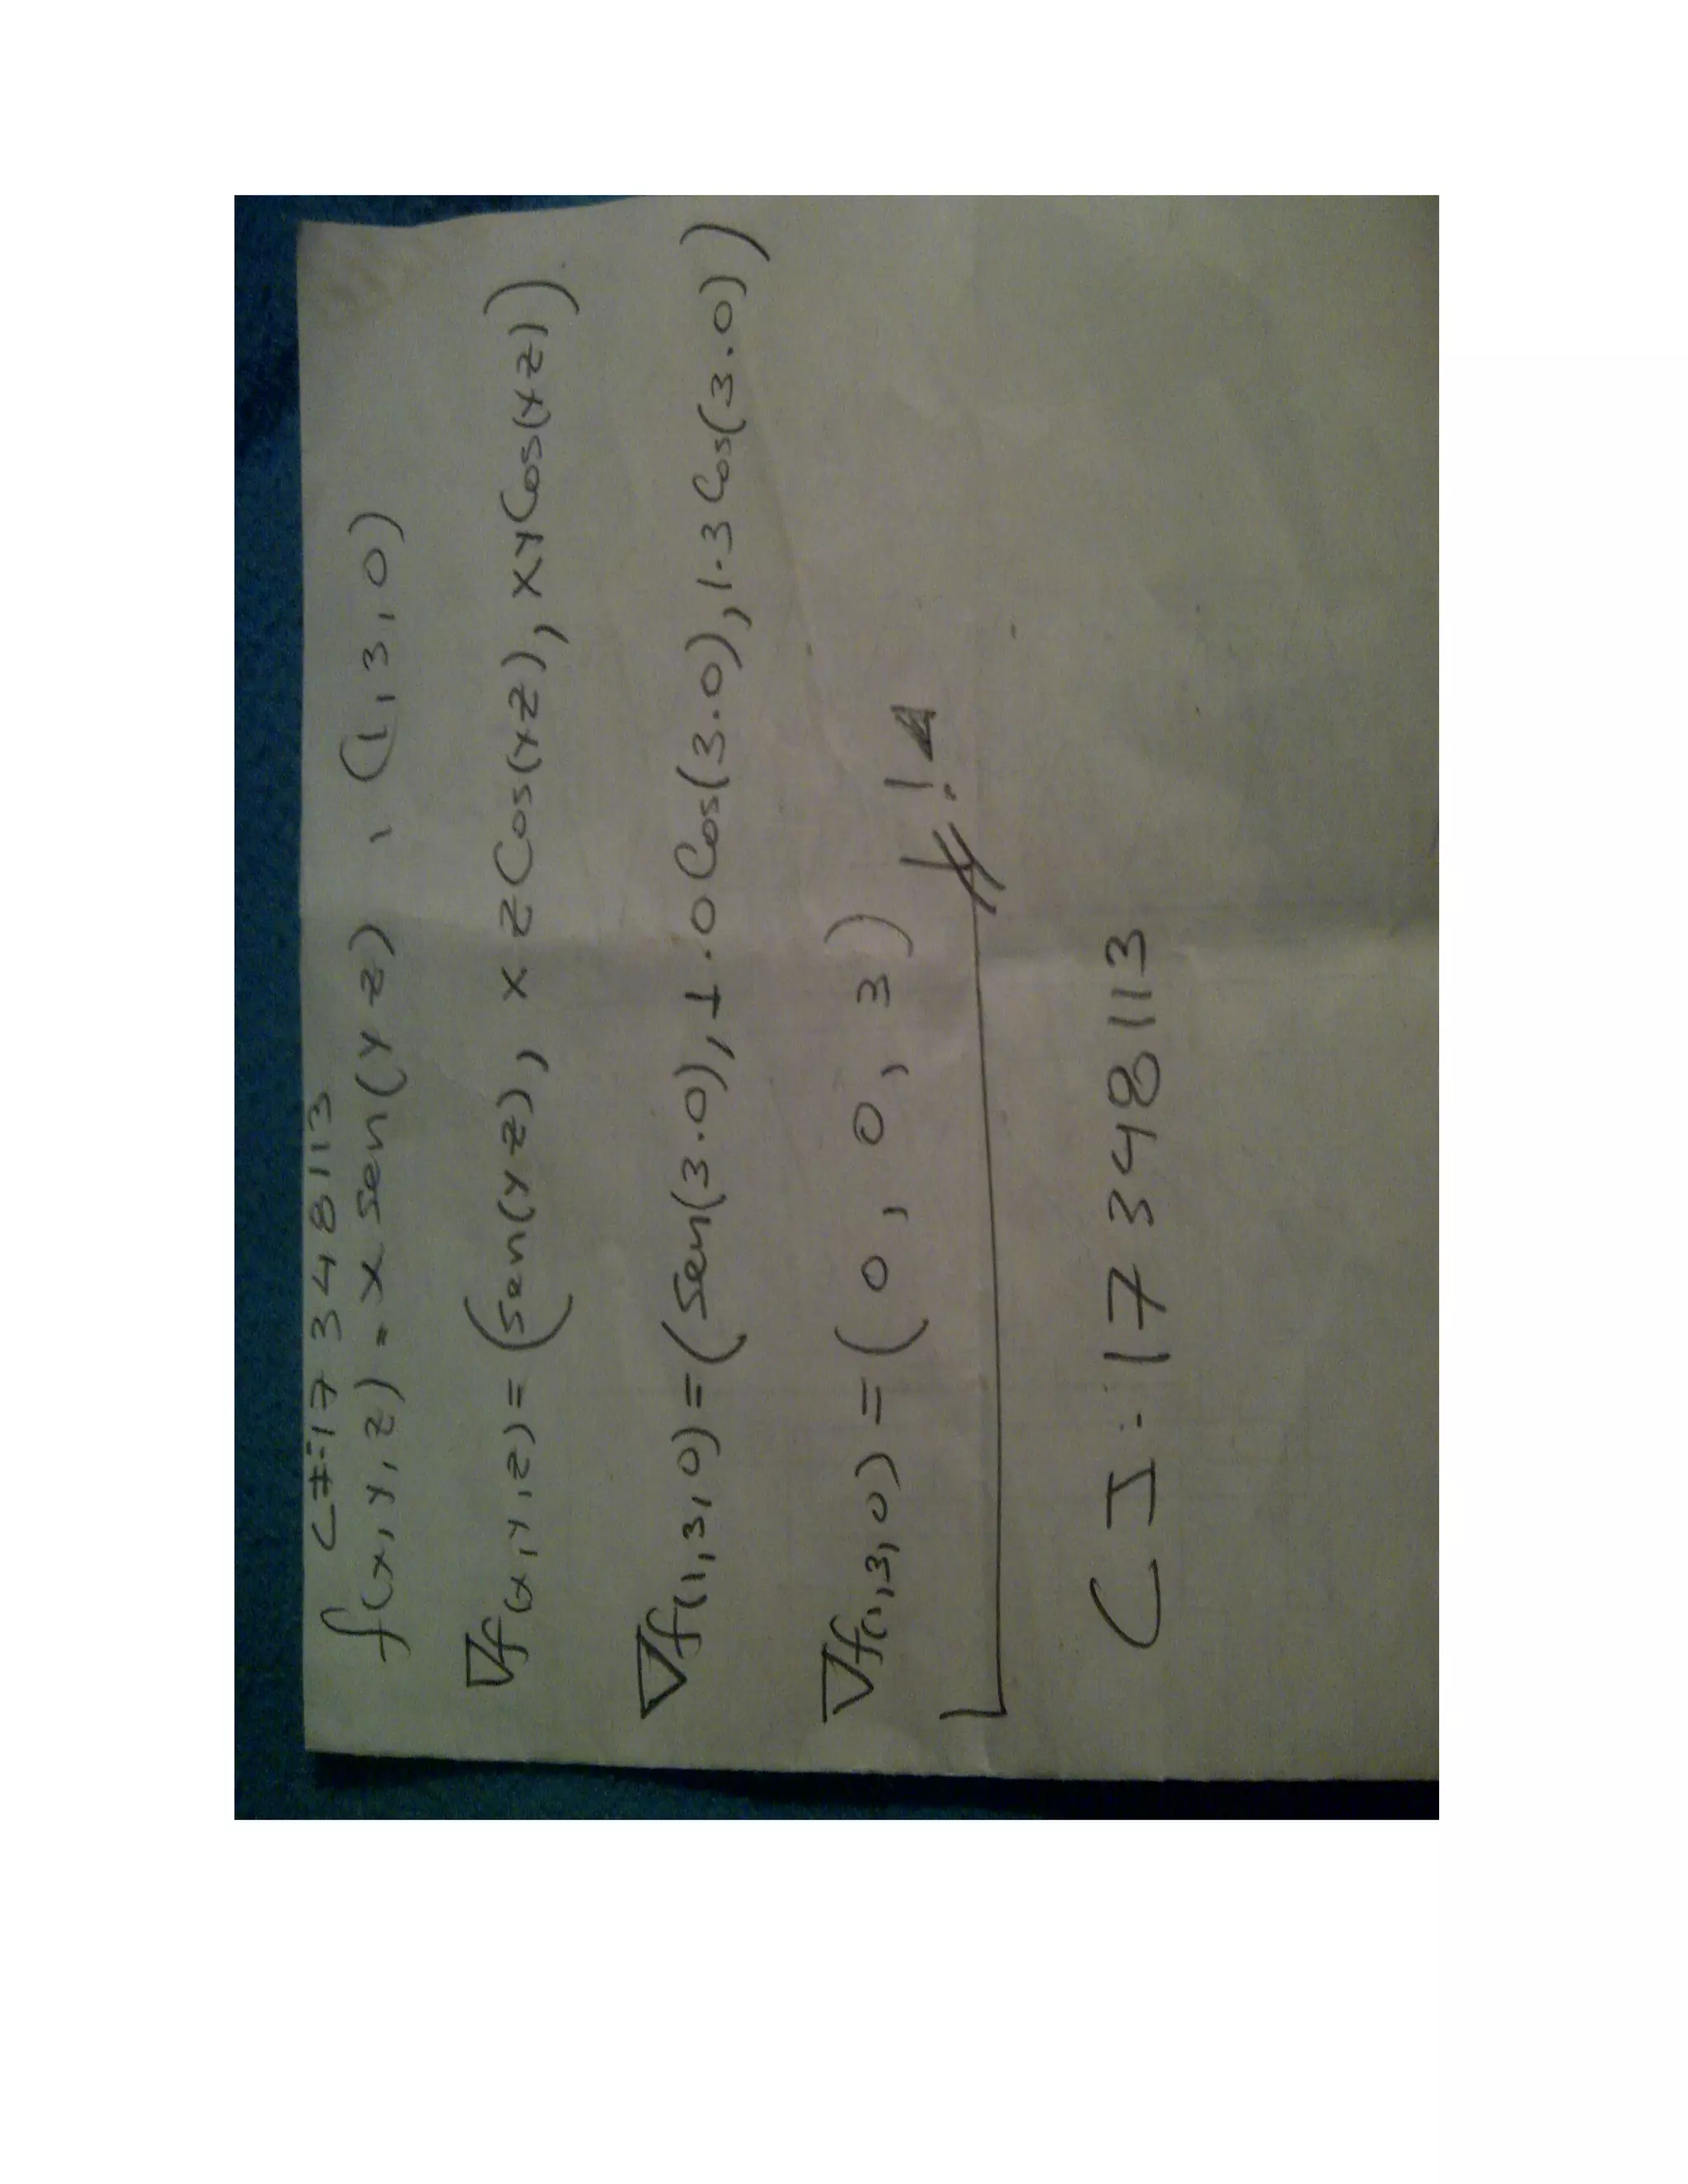 C#:17348113
f(x,y,z)=x Sen(yz) , (1,3,0)
∇f(x,y,z)=(Sen(yz), xzCos(yz), xyCos(yz))
∇f(1,3,0)=(Sen(3.0), 1.0Cos(3.0), 1.3Cos(3.0))
∇f(1,3,0)=(0,0,3)
CI:17348113